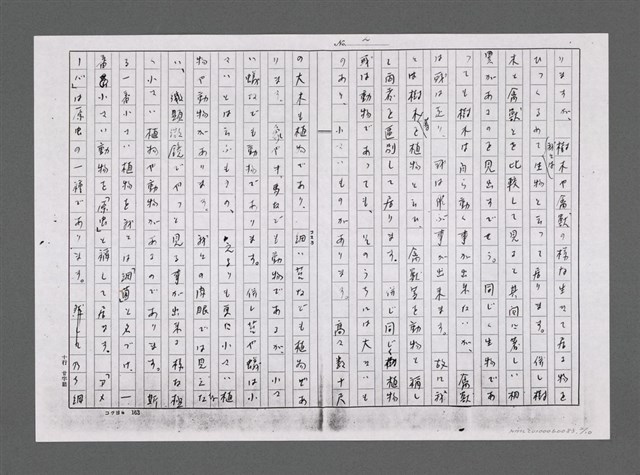 りますが、樹木や禽獣の様な生きて居る物を
ひつくるめて生物と云つて居ります。併し樹
木と禽獣とを比較して見ると其間に著しい相
異があるのを見出すでせう。同じく生物であ
つても樹木は自ら動く事が出来ないが、禽獣
は或は走り、或は飛ぶ事が出来ます。故に我
々は樹木を植物と云ひ、禽獣等を動物と稱し
て両者を區別して居ります。併し同じく植物
或は動物であつても、そのうちには大きいも
のあり、小さいものがあります。高さ数十尺
の大木も植物であり、細い苔なども植物であ
ります。象や牛馬なども動物であるが、小さ
い蟻なども動物であります。併し苔や蟻は小
さいとは云ふものゝ、之よりも更に小さい植
物や動物があります。我々の肉眼では見えな
い、顕微鏡でやつと見る事が出来る様な極
く小さい植物や動物があるのであります。斯
る一番小さい植物を我々は「細菌」と名づけ、一
番小さい動物を「原虫」と稱して居ます。「アメ
ーバ」は原虫の一種であります。
コクヨ 163